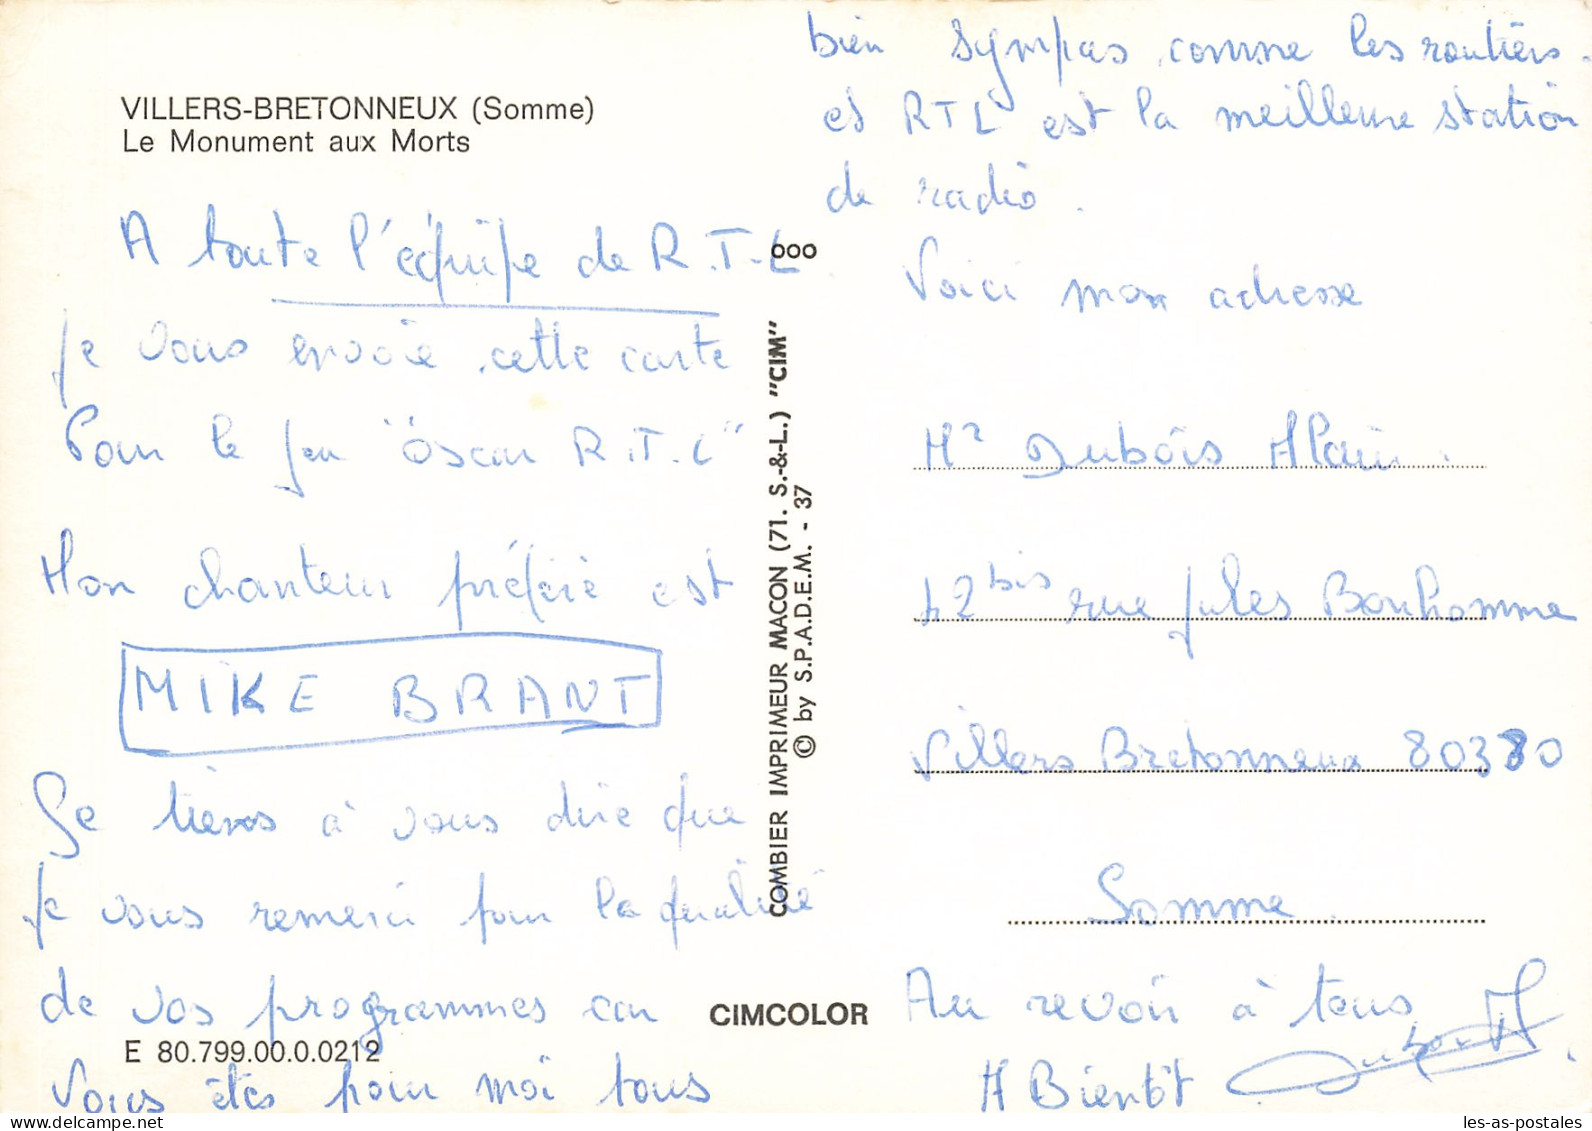 VILLERS-BRETONNEUX (Somme)
Le Monument aux Morts
A toute l'équipe de R.T.L
Je vous envoie cette carte
Pour le jeu "Oscar R.T.L"
Mon chanteur préféré est
MIKE BRANT
Je tiens à vous dire que
Je vous remerci pour la qualité
de vos programmes car
E 80.799.00.0.0212
Vous êtes pour moi tous
COMBIER IMPRIMEUR MACON (71. S.-&-L.) "CIM"
© by S.P.A.D.E.M. - 37
ooo
CIMCOLOR
bien sympas comme les routiers.
et RTL est la meilleure station
de radio.
Voici mon adresse
Mr Dubois Alain.
12 bis rue Jules Bonhomme
Villers Bretonneux 80380
Somme.
Au revoir à tous
A Bientôt
les-as-postales